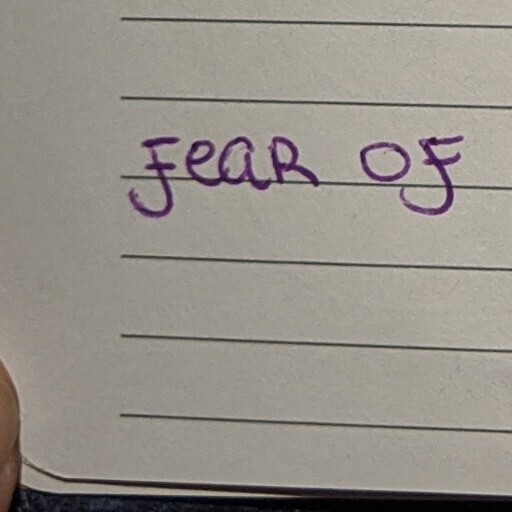 Fear of